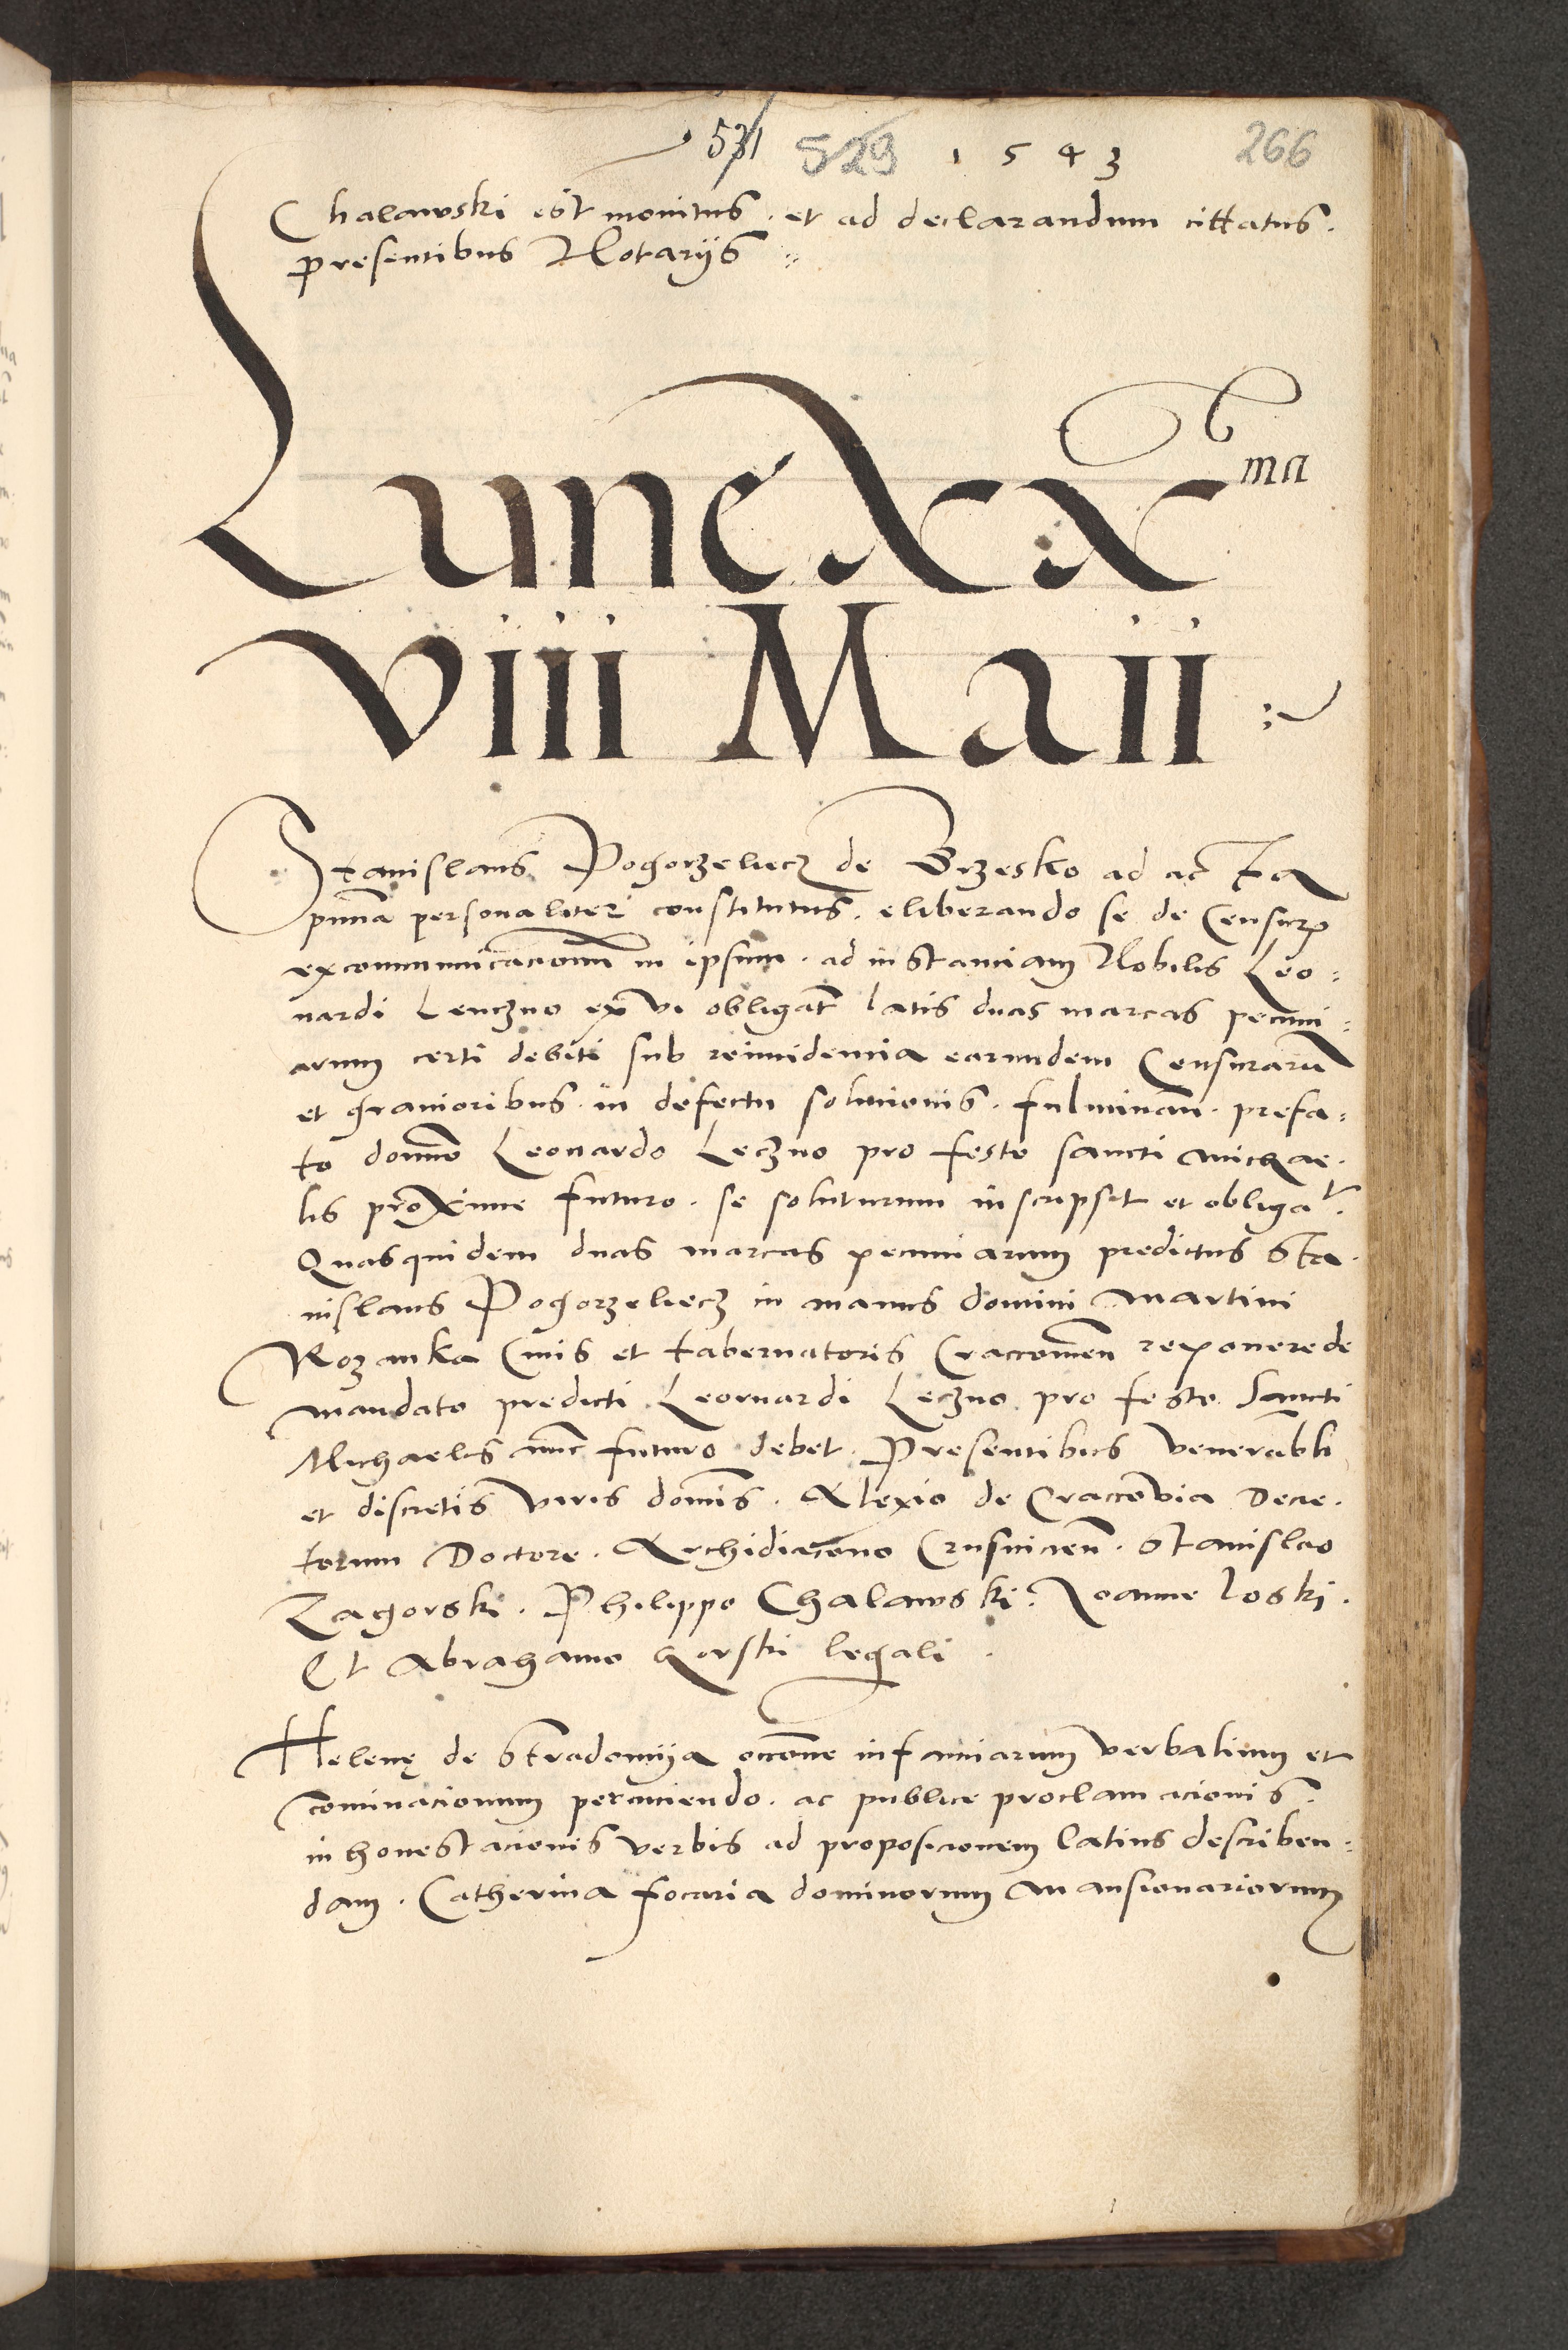 531 529 1543 266
Chalawski est monitus. et ad declarandum cittatus.
presentibus Notarijs
Lune Xx ma
viii Maii
Stanislaus Pogorzeliecz de Brzesko ad acta
pnna personaliter constitutus. eliberando se de Censurꝭ
excommunicacionum in ipsum. ad instanciam Nobilis Leo:
nardi Lenczno ex vi obligat latis duas marcas pecuni:
arum certi debiti sub reincidencia earundem Censuraru
et grauioribus in defectu solucionis. fulminan. prefa:
to domno Leonardo Leczno pro festo sancti Michae.
lis proxime futuro. se soluturum inscripsit et obligat.
Quasquidem duas marcas pecuniarum predictus Sta.
nislaus Pogorzeliecz in manus domini Martini
Rozanka Ciuis et tabernatoris Craccouien reponere de
mandato predicti Leornardi Leczno pro festo Sancti
Michaelis nunc futuro debet. Presentibus venerabli
et discretis viris domnis. Alexio de Craccovia Decre.
torum Doctore. Archidiacono Crusuicien. Stanislao
Zagorski. Philippo Chalawski. Joanne Loski.
Et Abrahamo Gorski legali.
Helenę de Stradomija occone infamiarum verbalium et
cominacionum percuciendo. ac publice proclamacionis.
inhonestacionis verbis ad proposicionem latius describen:
dam. Catherina focaria dominorum Mansionariorum